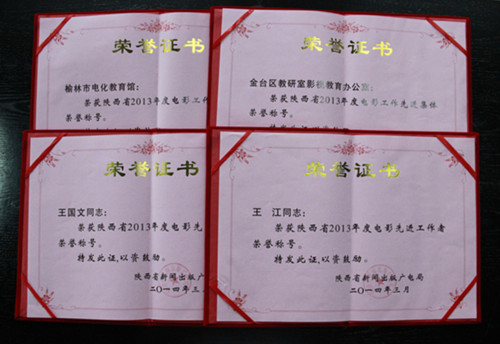 荣誉证书
榆林市电化教育馆：
荣获陕西省2013年度电影工作
荣誉称号。
荣誉证书
金台区教研室影视教育办公室：
荣获陕西省2013年度电影工作先进集体
荣誉称号。
荣誉证书
王国文同志：
荣获陕西省2013年度电影先
荣誉称号。
特发此证，以资鼓励。
陕西省新闻出版广
二〇一四年三
荣誉证书
王 江同志：
荣获陕西省2013年度电影先进工作者
荣誉称号。
特发此证，以资鼓励。
陕西省新闻出版广电局
二〇一四年三月